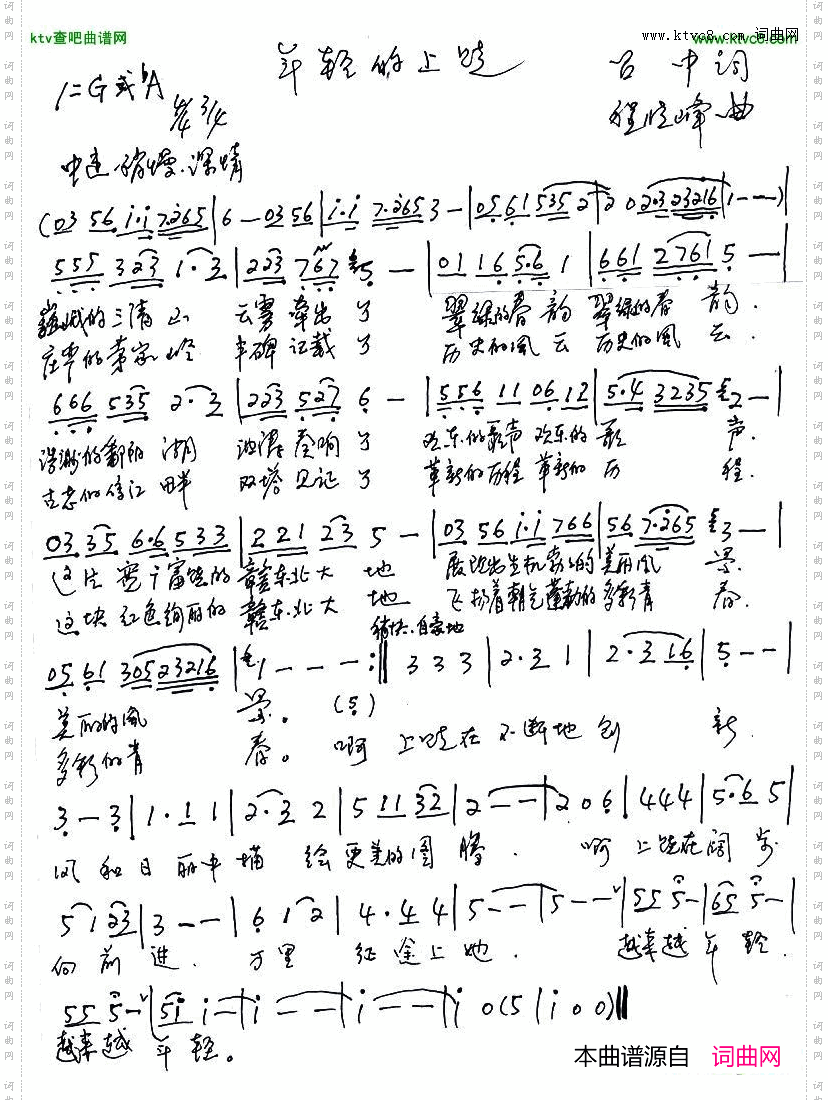 ktv查吧曲谱网
www.ktvc8.com 词曲网
www.ktvc8.com
年轻的上饶
1=G或bA 4/4 3/4
占中词
程晓峰曲
中速稍慢.深情
(03 56 i·i 7265 | 6 - 03 56 | i·i 7·265 3 - | 05 61 535 2 | 2 02·3 23216 | 1 - - )|
555 323 1·3 | 223 767 5 - | 01 16 5·6 1 | 661 2761 5 - - |
巍峨的三清山 云雾牵出了 翠绿的春韵 翠绿的春韵.
的 丰碑记载了 历史的风云 历史的风云.
666 535 2·3 | 223 527 6 - | 556 11 06 12 | 5·4 3235 2 - |
浩渺的鄱阳湖 奏响了 欢乐的歌声 欢乐的歌声.
古老的信江畔 双塔见证了 革新的历程 革新的历程.
03 35 6·6 533 | 221 23 5 - | 03 56 i·i 766 | 56 7·265 3 - |
这片 富饶的赣东北大地 展现出生机 的美丽风景
这块红色绚丽的赣东北大地 飞扬着朝气蓬勃的多彩青春.
稍快.自豪地
05 61 305 23216 | 1 - - - :‖ 3 3 3 | 2·3 1 | 2·3 16 | 5 - - |
美丽的风景。 (5)
多彩的青春。 啊 上饶在不断地创新
3 - 3 | 1·1 1 | 2·3 2 | 5 11 32 | 2 - - | 2 0 6 | 4 4 4 | 5·6 5 |
风和日丽中描绘更美的图腾. 啊 上饶在阔步
5 1 23 | 3 - - | 6 1 2 | 4·4 4 | 5 - - | 5 - - | 55 5 - | 65 5 - |
向前进. 万里征途上她. 越来越年轻.
55 5 - | 5i i - | i - - | i - - | i 0 (5 | i 0 0 )‖
越来越年轻。
本曲谱源自 词曲网